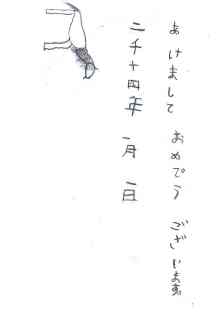 あけまして おめでう ございます
二千十四年 一月 一日